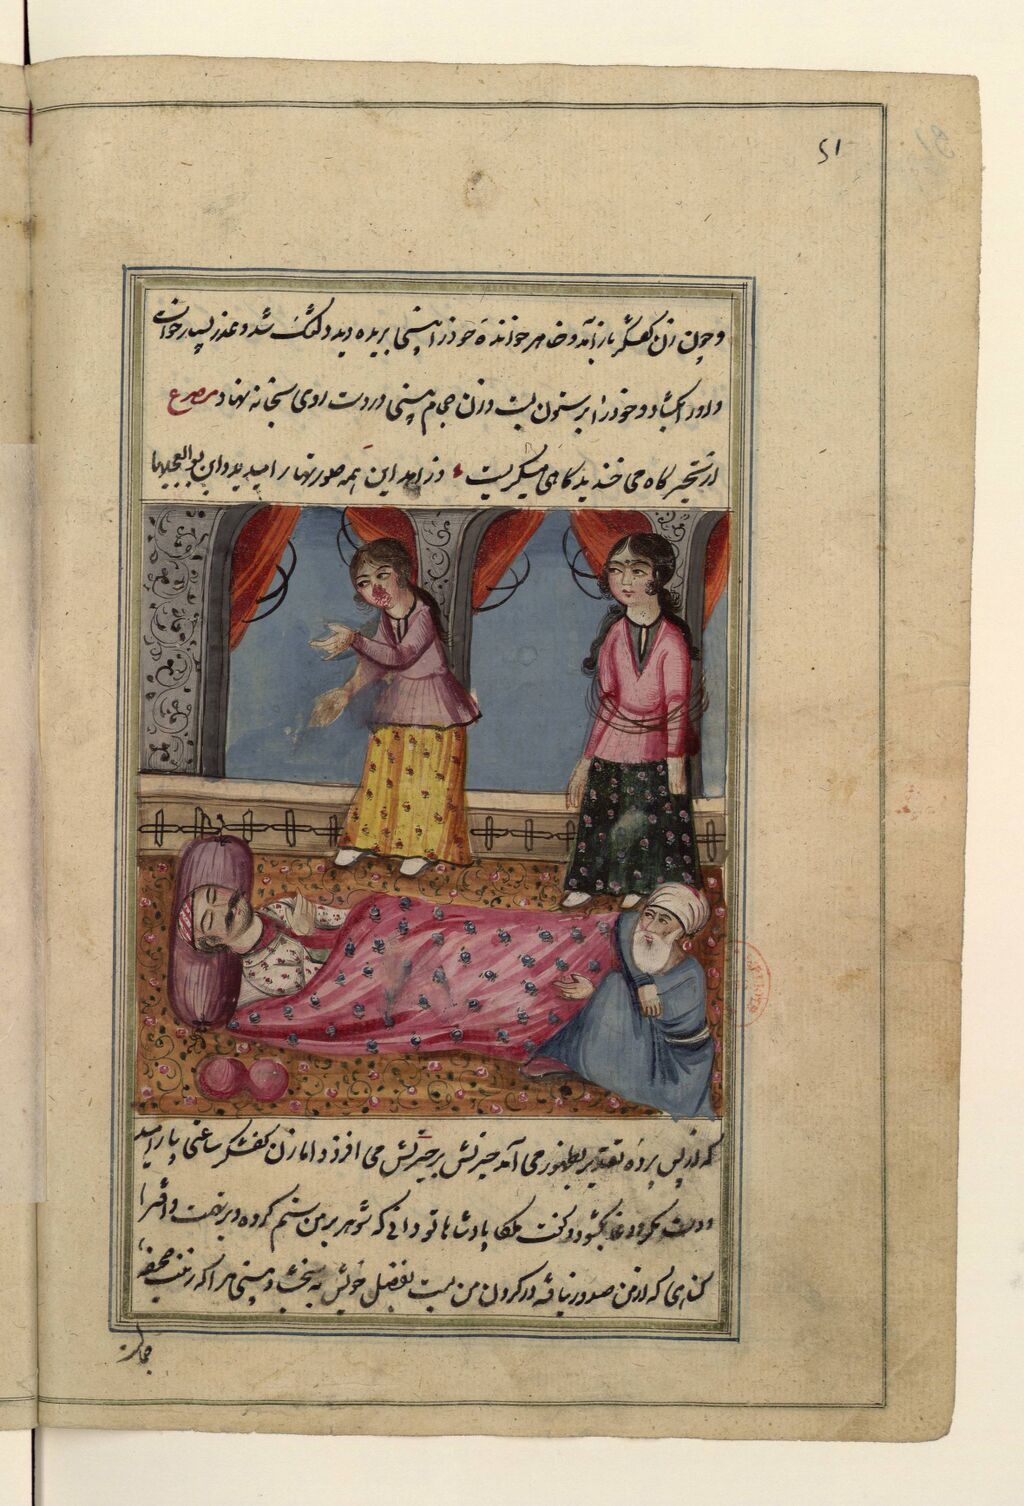 ۵۱
و چون زن کفشگر باز آمد و خواهر خوانده خود را بینی بریده دید دلتنگ شد و عذر بسیار خواست
و او را بگشاد و خود را بر ستون بست و زن حجام بینی در دست روی بخانه نهاد مصرع
از تحیر گاه می خندید گاهی میگریست و زاهد این همه صورتها را میدید و این بوالعجبیها
که از پس پرده تقدیر بظهور می آمد حیرتش بر حیرتش می افزود اما زن کفشگر ساعتی بیارامید
و دست مکر و دعا بگشود و گفت ملکا پادشاها تو دانی که شوهر بر من ستم کرده و بر تهمت و افترا
گناهی که از من صدور نیافته در گردن من بست بفضل خویش به بخشای و بینی مرا که زینت صحیفه
جمالست